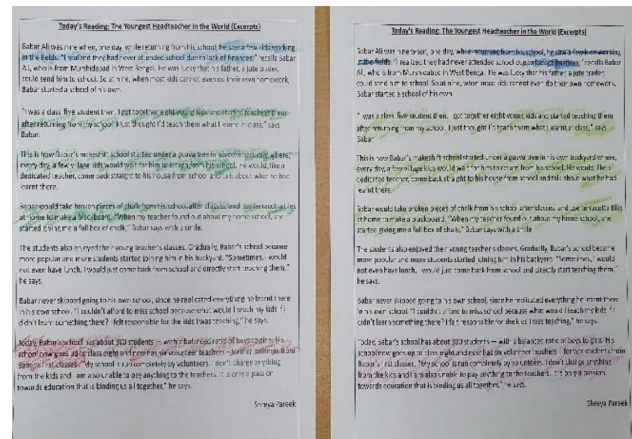 Today's Reading: The Youngest Headteacher in the World (Excerpts)
Babar Ali was nine when, one day, while returning from his school, he saw a few kids working
in the fields. "I realized they had never attended school due to lack of finances," recalls Babar
Ali, who is from Murshidabad in West Bengal. He was lucky that his father, a jute trader,
could send him to school. So at nine, when most kids cannot even do their own homework,
Babar started a school of his own.
"I was a class five student then. I got together eight young kids and started teaching them
after returning from my school. I just thought I'd teach them what I learnt in class," says
Babar.
This is how Babar's makeshift school started under a guava tree in his own backyard where,
every day, a few village kids would wait for him to return from his school. He would, like a
dedicated teacher, come back straight to his house from school and talk about what he had
learnt there.
Babar would take broken pieces of chalk from his school after classes and use terracotta tiles
at home to make a blackboard. "When my teacher found out about my home school, she
started giving me a full box of chalk," Babar says with a smile.
The students also enjoyed their young teacher's classes. Gradually, Babar's school became
more popular and more students started joining him in his backyard. "Sometimes, I would
not even have lunch. I would just come back from school and directly start teaching them,"
he says.
Babar never skipped going to his own school, since he replicated everything he learnt there
in his own school. "I couldn't afford to miss school because what would I teach my kids if I
didn't learn something there? I felt responsible for the kids I was teaching," he says.
Today, Babar's school has about 300 students — with a balanced ratio of boys to girls. His
school now goes up to class eight and now has six volunteer teachers – former students from
Babar's first classes. "My school is run completely by volunteers. I don't charge anything
from the kids and I am also unable to pay anything to the teachers. It is only a passion
towards education that is binding us all together," he says.
Shreya Pareek
Today's Reading: The Youngest Headteacher in the World (Excerpts)
Babar Ali was nine when, one day, while returning from his school, he saw a few kids working
in the fields. "I realized they had never attended school due to lack of finances," recalls Babar
Ali, who is from Murshidabad in West Bengal. He was lucky that his father, a jute trader,
could send him to school. So at nine, when most kids cannot even do their own homework,
Babar started a school of his own.
"I was a class five student then. I got together eight young kids and started teaching them
after returning from my school. I just thought I'd teach them what I learnt in class," says
Babar.
This is how Babar's makeshift school started under a guava tree in his own backyard where,
every day, a few village kids would wait for him to return from his school. He would, like a
dedicated teacher, come back straight to his house from school and talk about what he had
learnt there.
Babar would take broken pieces of chalk from his school after classes and use terracotta tiles
at home to make a blackboard. "When my teacher found out about my home school, she
started giving me a full box of chalk," Babar says with a smile.
The students also enjoyed their young teacher's classes. Gradually, Babar's school became
more popular and more students started joining him in his backyard. "Sometimes, I would
not even have lunch. I would just come back from school and directly start teaching them,"
he says.
Babar never skipped going to his own school, since he replicated everything he learnt there
in his own school. "I couldn't afford to miss school because what would I teach my kids if I
didn't learn something there? I felt responsible for the kids I was teaching," he says.
Today, Babar's school has about 300 students — with a balanced ratio of boys to girls. His
school now goes up to class eight and now has six volunteer teachers – former students from
Babar's first classes. "My school is run completely by volunteers. I don't charge anything
from the kids and I am also unable to pay anything to the teachers. It is only a passion
towards education that is binding us all together," he says.
Shreya Pareek